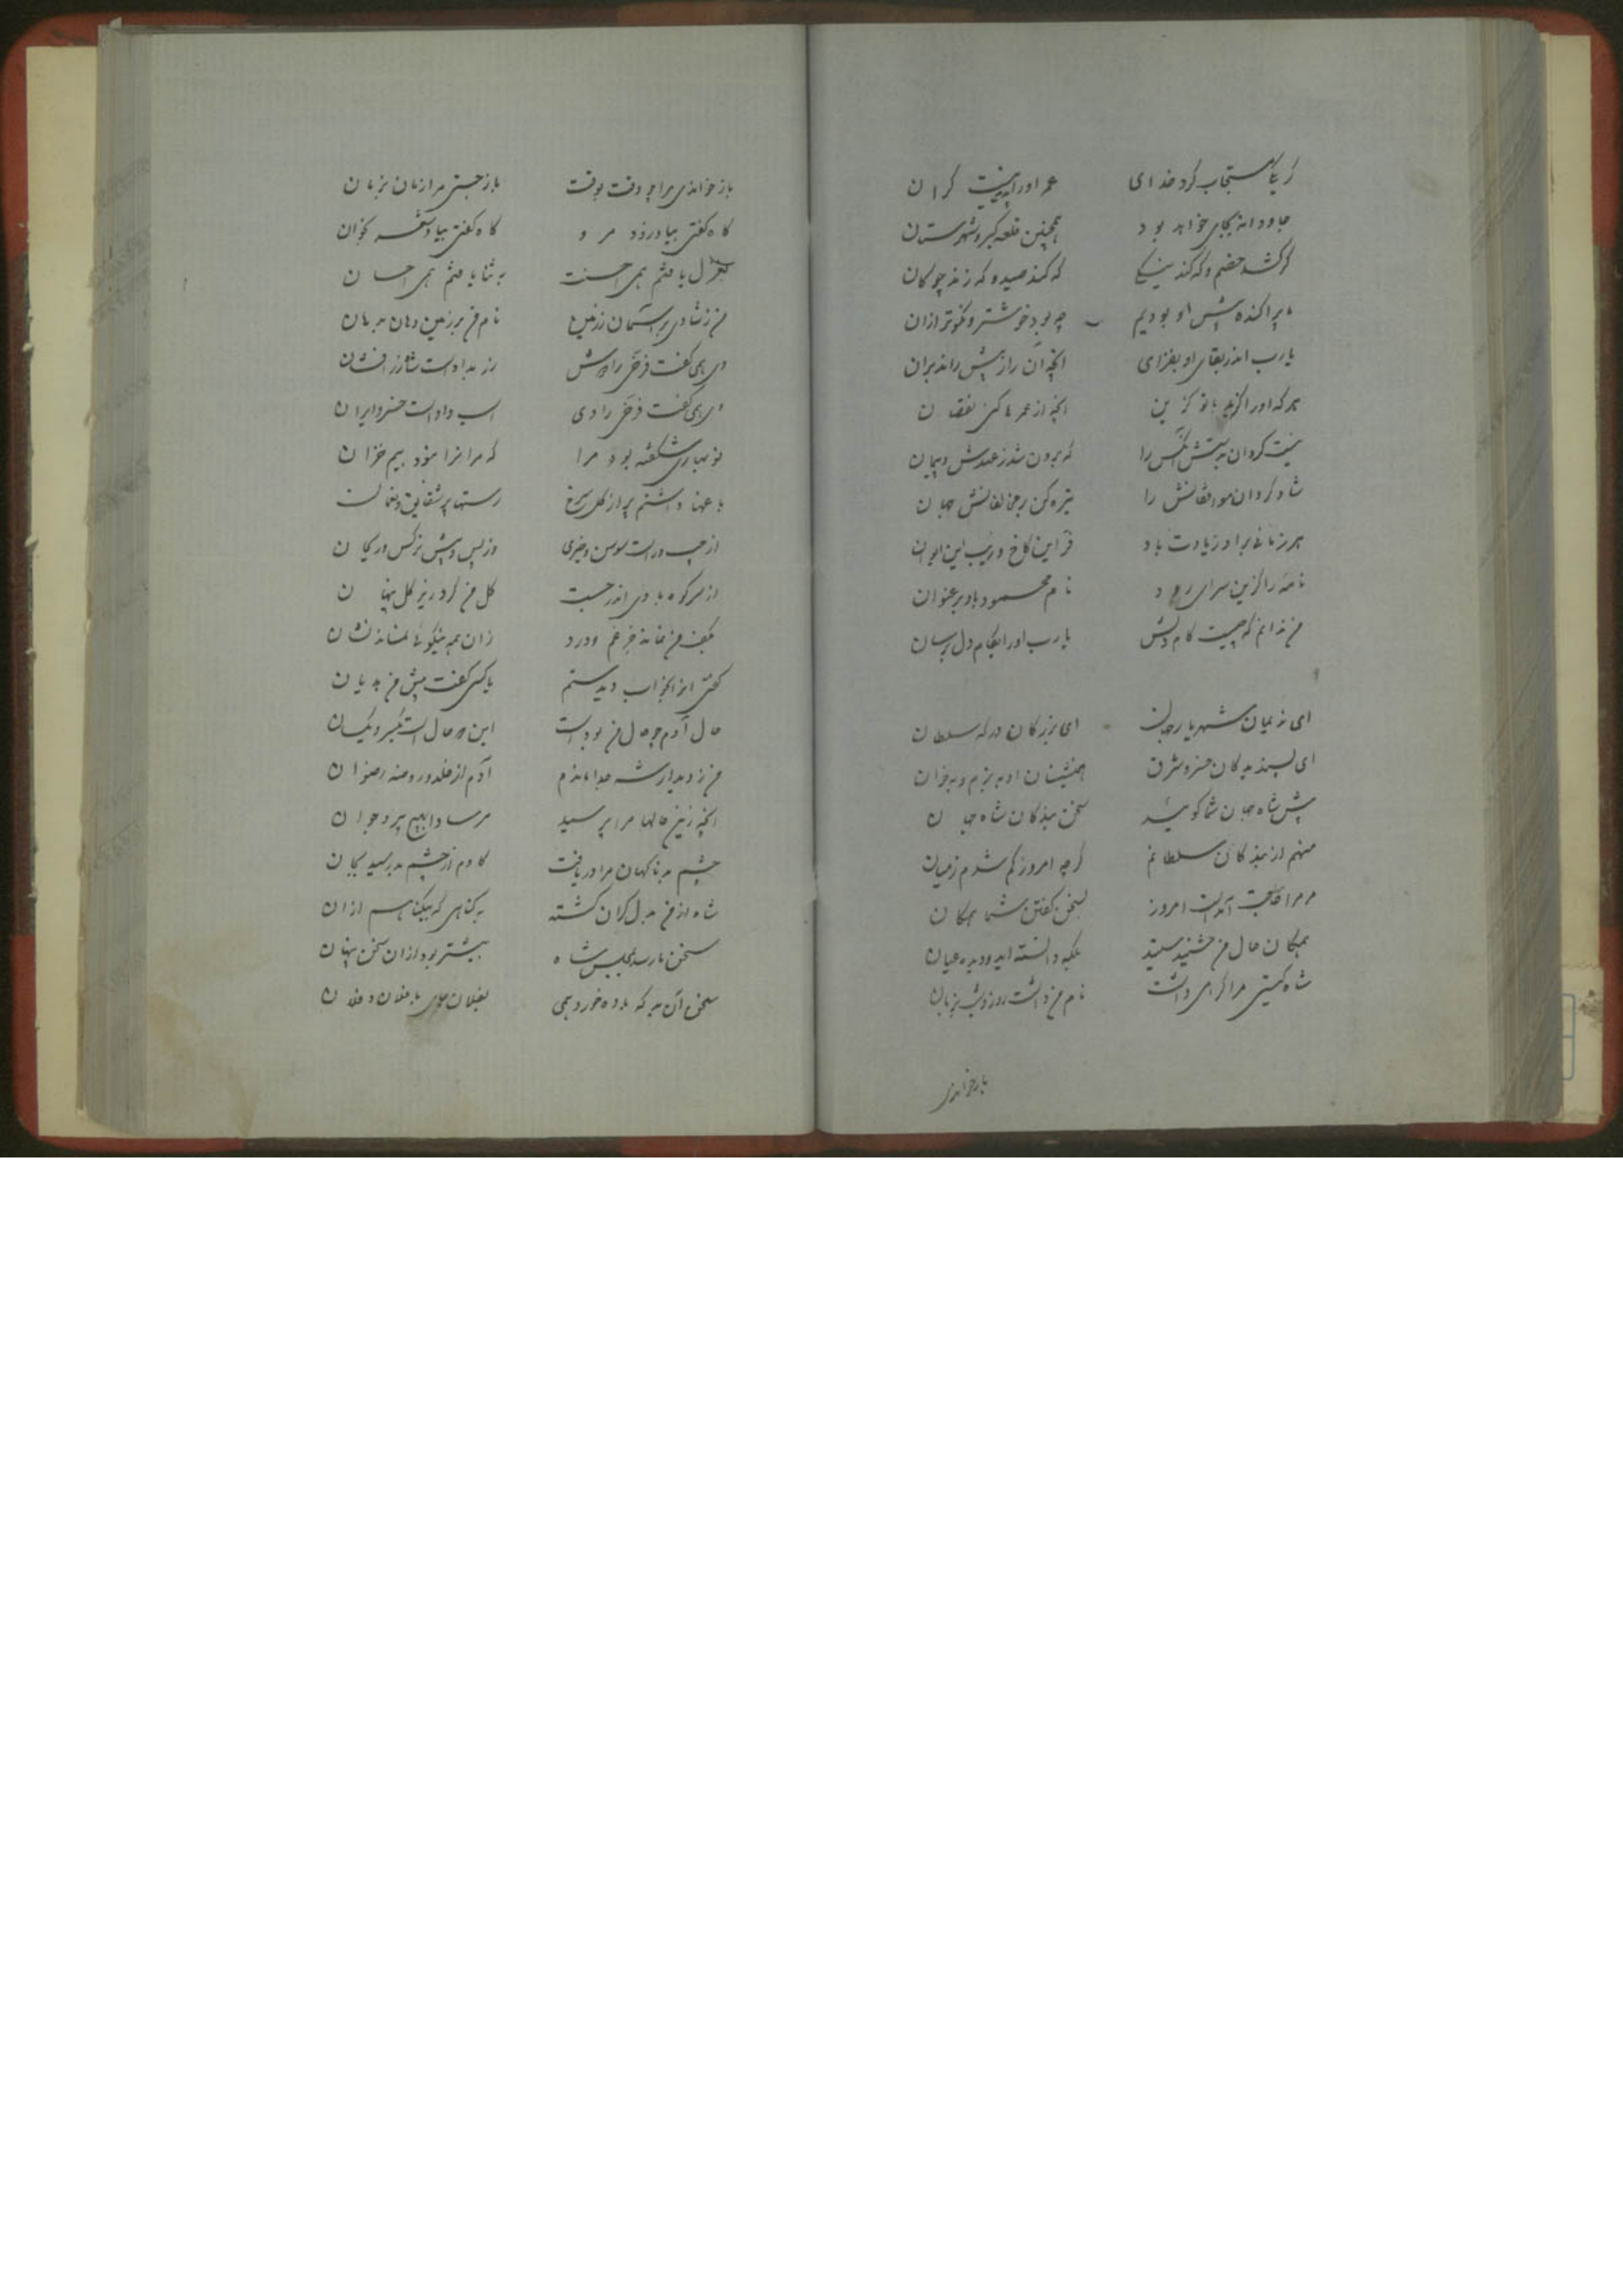 گر یکی مستجاب کرد خدای عمر او را پدید نیست کران
جاودانه بجای خواهد بود همچنین قلعه گیر و شهرستان
که کشد خصم و که کند نیکی که کند صید و که زند چوکان
ما پراکنده پیش او بودیم چه بود خوشتر و نکوتر ازان
یارب اندر بقای او بفزای انچه ان را ز پیش راندبران
هر که او را نه با تو کزین انچه از عمر ما کنی نقصان
نیست کردان به پیش انکس را که برون شد ز عهدش و پیمان
شاد کردان موافقانش را تیره کن بر مخالفانش جهان
هر زمانی برو زیادت باد فر این کاخ و زیب این ایوان
نامه را کزین سرای رود نام محمود باد بر عنوان
من ندانم که چیست کام دلش یارب او را بکام دل برسان
ای ندیمان شهریار جهان ای بزرکان درکه سلطان
ای پسندیدکان خسرو شرق همنشینان او به بزم و بخوان
پیش شاه جهان شما کوئید سخن بندکان شاه جهان
منهم از بندکان سلطانم کرچه امروز کم شدم ز میان
مر مرا حاجت آمدست امروز بسخن کفتن شما همکان
همکان حال من شنیدستید بلکه دانسته اید و دیده عیان
شاه کیتی مرا کرامی داشت نام من داشت روز و شب بزبان
باز خواندی
باز خواندی مرا چو وقت بوقت باز جستی مرا زمان بزمان
کاه کفتی بیا و رود مرو کاه کفتی بیا و شعر بخوان
بغزل یافتم همی احسنت به ثنا یافتم همی احسان
من ز شادی بر آسمان زمین نام من بر زمین دهان بدهان
این همی کفت فرخی را دوش زر بدادست شاه زرافشان
ان همی کفت فرخی را دی اسب دادست خسرو ایران
نوبهاری شکفته بود مرا که مرا نرا نبود بیم خزان
باغها داشتم پر از کل سرخ دستها پر شقایق و نعمان
از چپ و راست سوسن و خیری وز پس و پیش نرکس و ریحان
از سر کوه بادی اندر جست کل من کرد زیر کل پنهان
بکف من نماند جز غم و درد زان همه نیکوئی نماند نشان
کفتی انرا بخواب دیدستم یا کسی کفت پیش من هذیان
حال آدم چو حال من بودست این دو حال است یکسر و یکسان
من ز دیدار شه جدا ماندم آدم از خلد و روضه رضوان
انچه زین حالها مرا برسید مرسادا بهیچ پیر و جوان
چشم بد ناکهان مرا دریافت کارم از چشم بد رسید بجان
شاه از من بدل کران کشته به کناهی که بیکناهم ازان
سخن ما رسد بمجلس شاه بیشتر بود ازان سخن پنهان
سخن آن بد که باده خورده همی بفلان جای با فلان و فلان